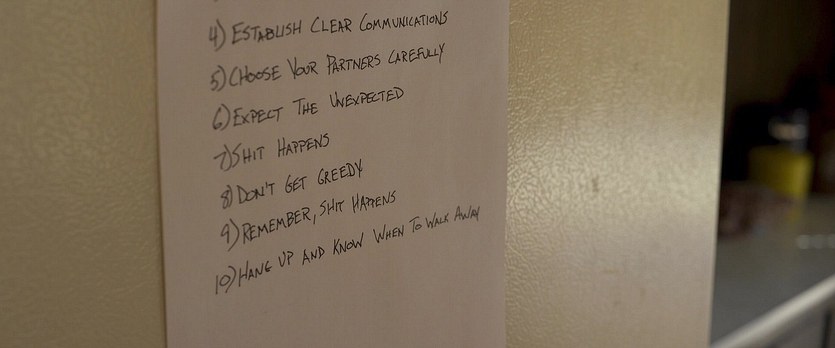 4) ESTABLISH CLEAR COMMUNICATIONS
5) CHOOSE YOUR PARTNERS CAREFULLY
6) EXPECT THE UNEXPECTED
7) SHIT HAPPENS
8) DON'T GET GREEDY
9) REMEMBER, SHIT HAPPENS
10) HANG UP AND KNOW WHEN TO WALK AWAY